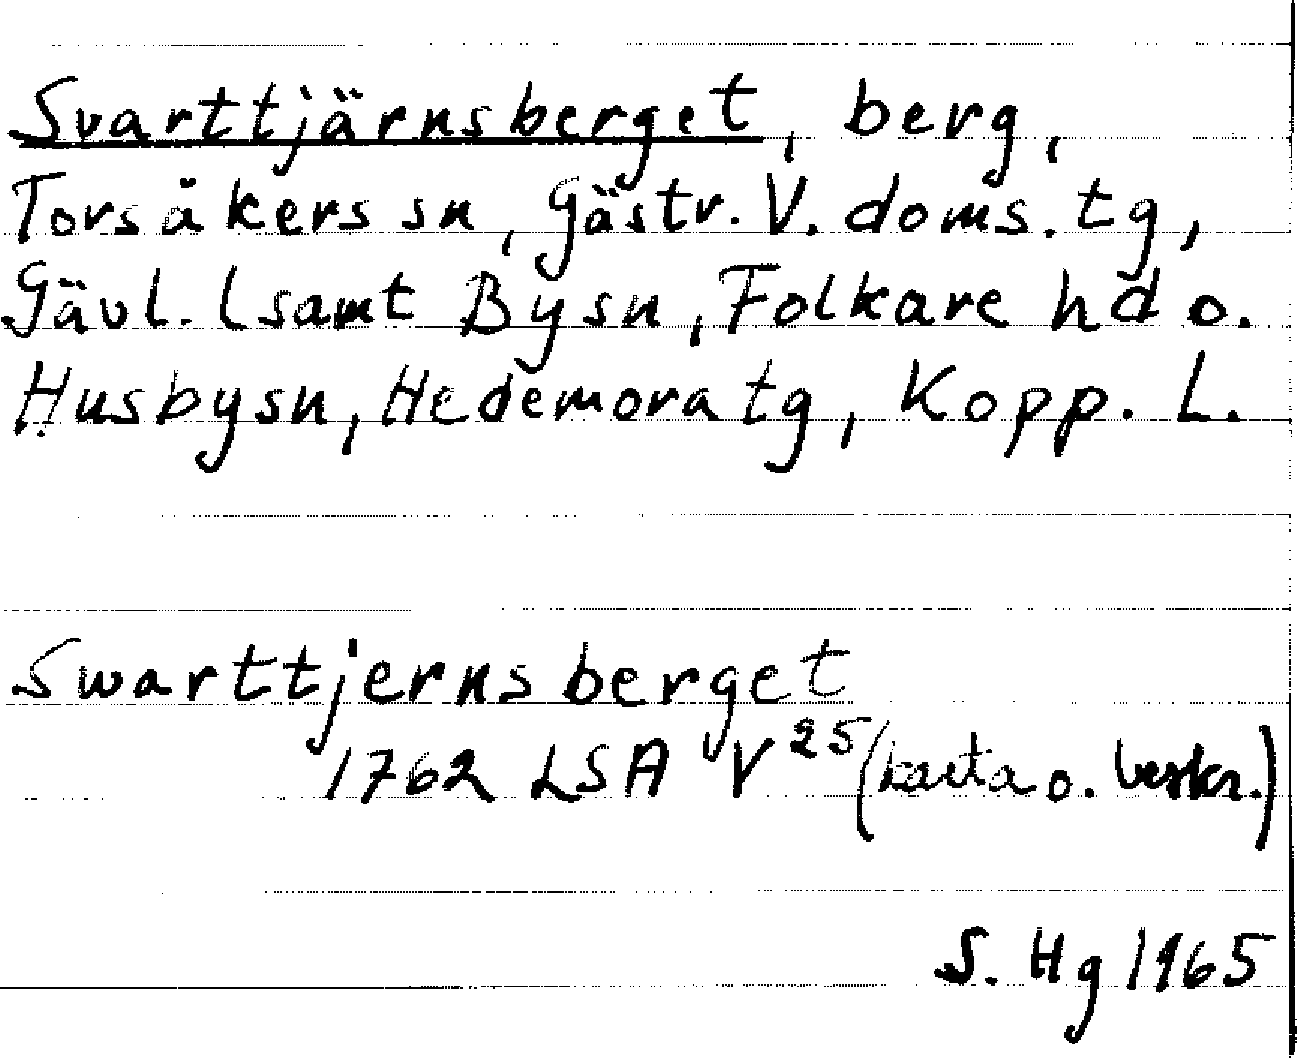 Svarttjärnsberget, berg,
Torsåkers sn, Gästr. V. doms. tg,
Gävl. l samt By sn, Folkare hd o.
Husby sn, Hedemora tg, Kopp. L.
Swarttjernsberget
1762 LSA V 25 (karta o. beskr.)
S. Hg 1965